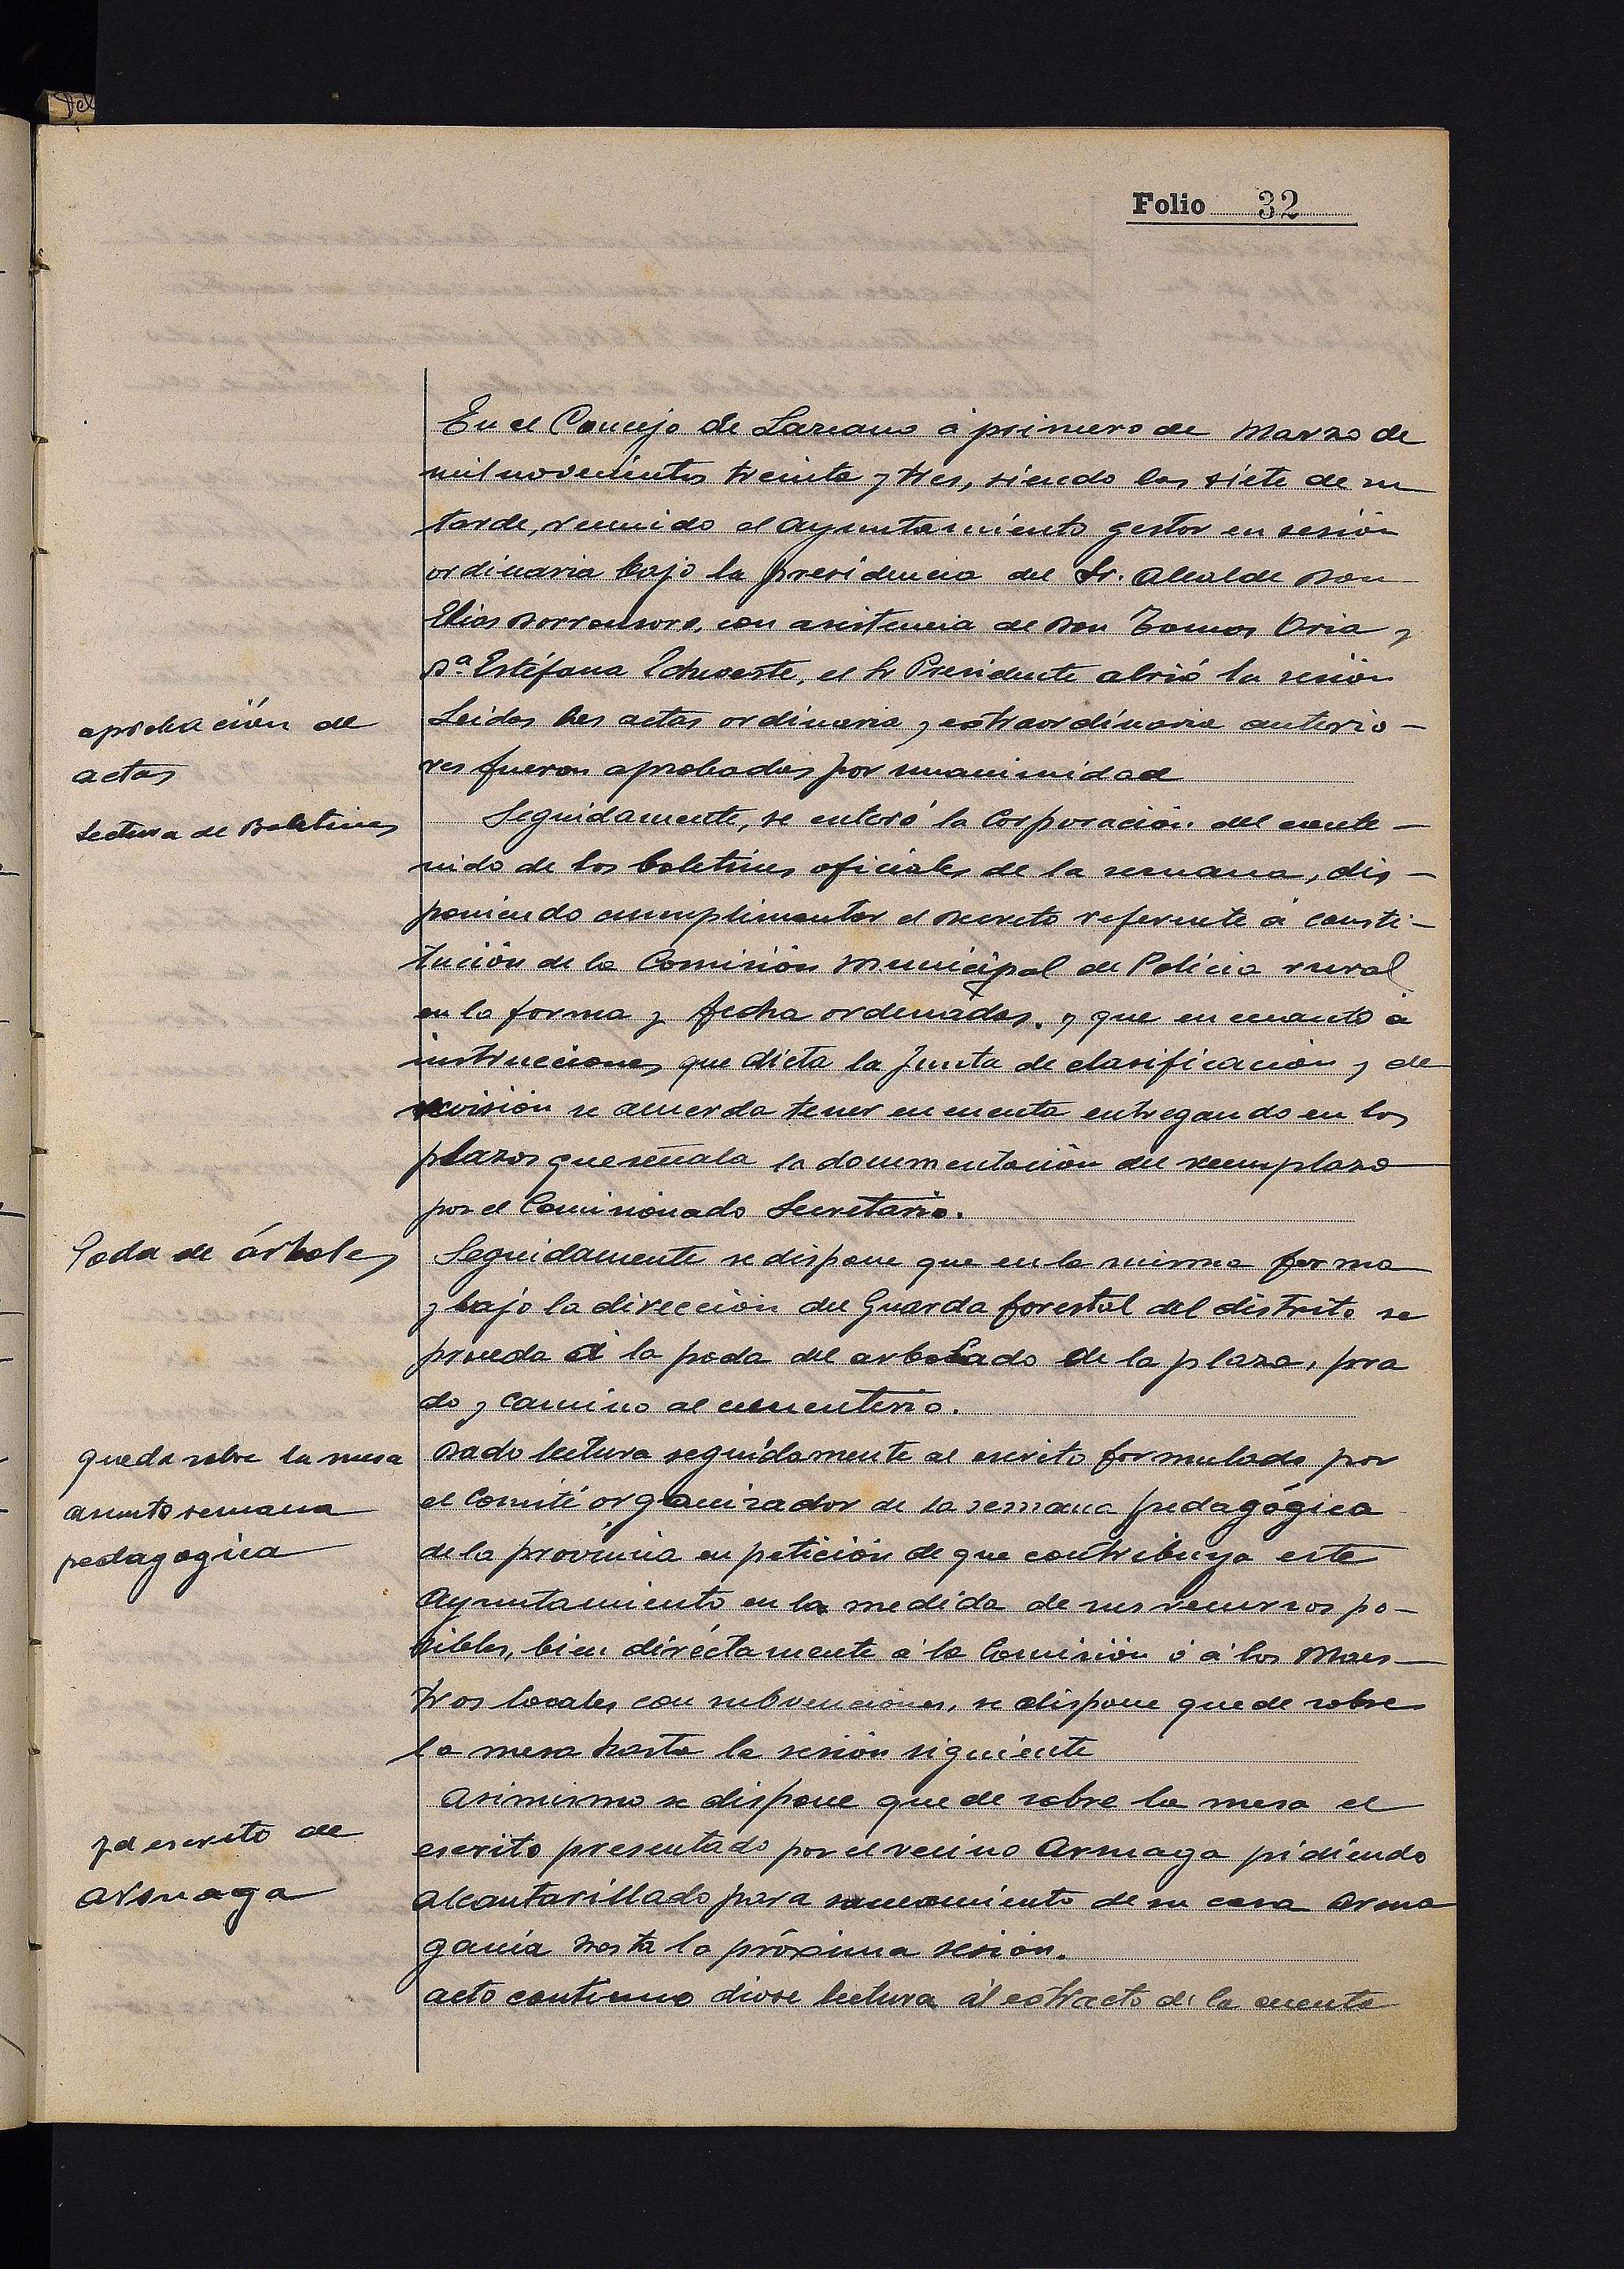 Folio 32
En el Concejo de Lazcano á primero de Marzo de
mil novecientos treinta y tres, siendo las siete de su
tarde, reunido el Ayuntamiento gestor en sesión
ordinaria bajo la presidencia del Sr. Alcalde Don
Elias Dorronsoro, con asistencia de Don Tomas Oria y
Dª Estéfana Echeveste, el Sr Presidente abrió la sesión
aprobación de
actas
Leidas las actas ordinaria y extraordinaria anterio-
res fueron aprobadas por unanimidad
Lectura de Boletines
Seguidamente, se enteró la Corporación del conte-
nido de los boletines oficiales de la semana, dis-
poniendo cumplimentar el Decreto referente á consti-
tución de la Comisión Municipal de Policia rural
en la forma y fecha ordenadas. y que en cuanto á
instrucciones que dicta la Junta de clasificación y de
revisión se acuerda tener en cuenta entregando en los
plazos que señala la documentación del reemplazo
por el Comisionado Secretario.
Poda de árboles
Seguidamente se dispone que en la misma forma
y bajo la dirección del Guarda forestal del distrito se
proceda á la poda del arbolado de la plaza, pra
do y camino al cementerio.
queda sobre la mesa
asunto semana
pedagogica
Dado lectura seguidamente al escrito formulado por
el Comité organizador de la semana pedagógica
de la provincia en petición de que contribuya este
Ayuntamiento en la medida de sus recursos po-
sibles, bien diréctamente á la Comisión ó á los Maes-
tros locales con subvenciones, se dispone quede sobre
la mesa hasta la sesión siguiente
y el escrito de
Arsuaga
Asimismo se dispone quede sobre la mesa el
escrito presentado por el vecino Armaga pidiendo
alcantarillado para saneamiento de su casa Arma
gania hasta la próxima sesión.
acto continuo diose lectura al extracto de la cuenta